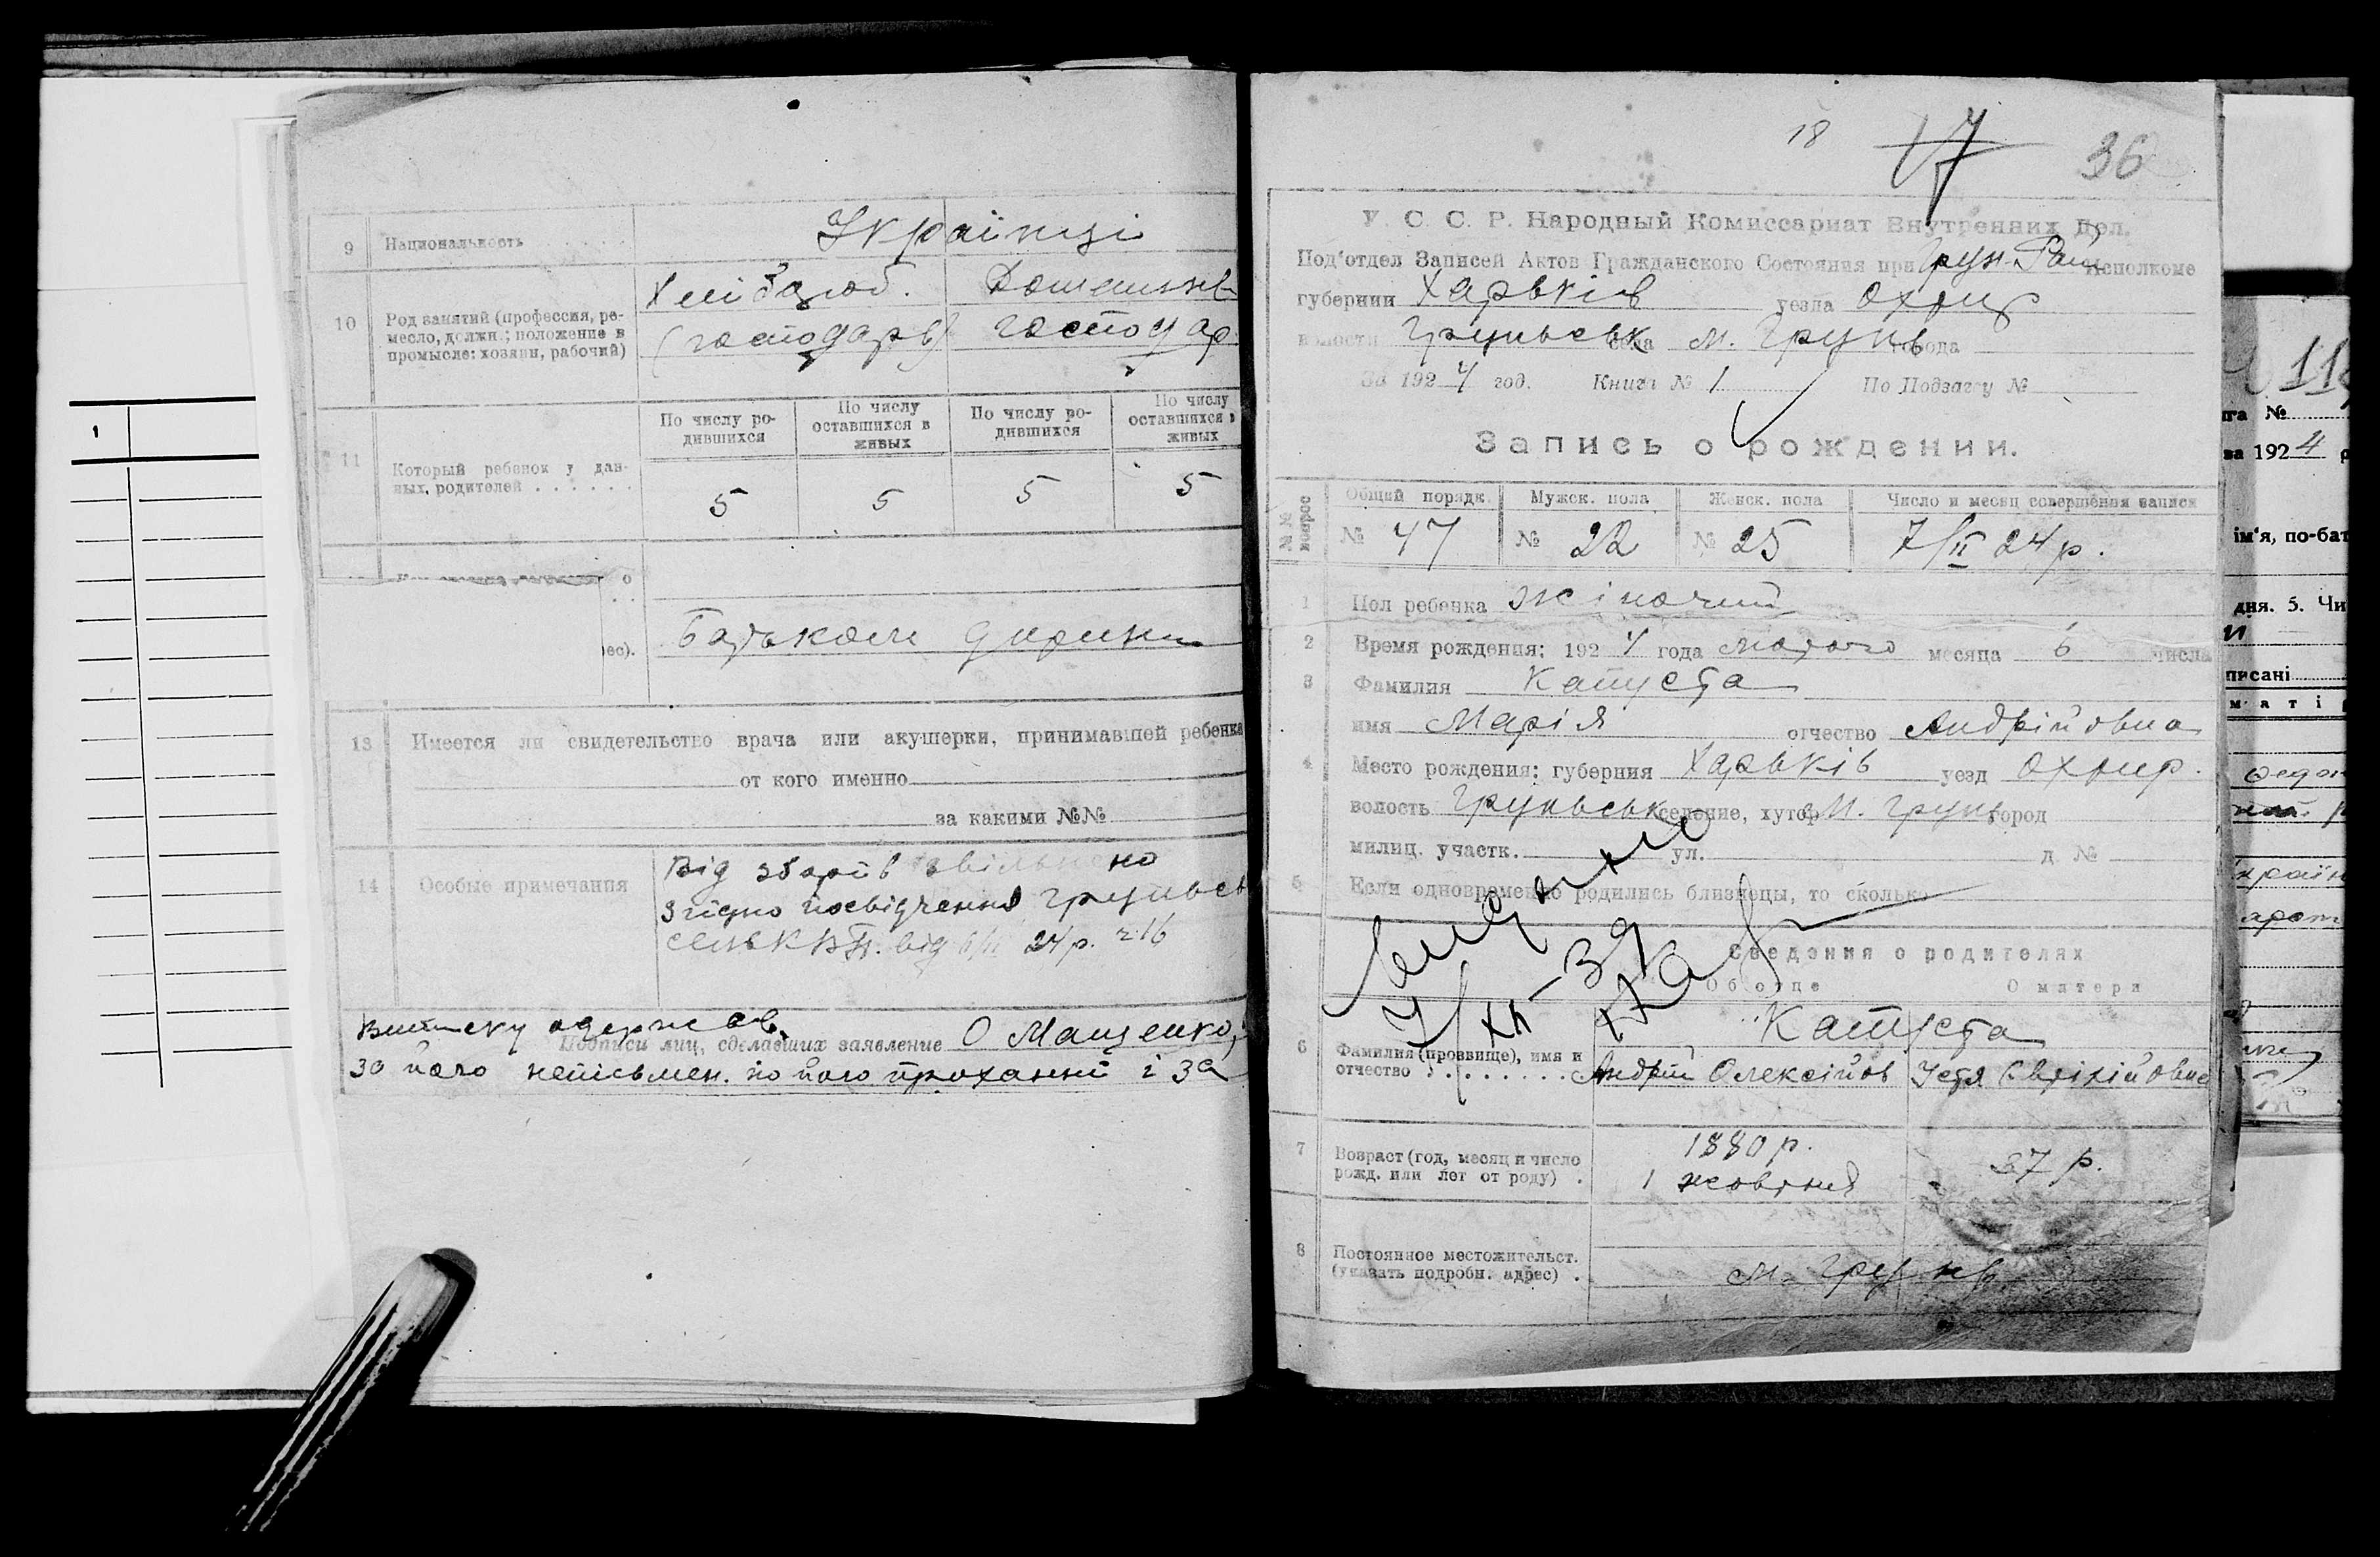 9 Национальность Українці
10 Род занятий (профессия, ре-
месло, должн.; положение в
промысле: хозяин, рабочий)
Хлібороб. Домашнє
(господарь) господар.
11 Который ребенок у дан-
ных родителей
По числу ро-
дившихся
По числу
оставшихся в
живых
По числу ро-
дившихся
По числу
оставшихся в
живых
5 5 5 5
ес).
Батьком дитини
13 Имеется ли свидетельство врача или акушерки, принимавшей ребенка
от кого именно
за какими №№
14 Особые примечания
Від зборів звільнено
згідно посвідчення Груньськ
24 р. ч 16
Виписку одержав.
Подписи лиц, сделавших заявление О Мащенко,
за його неписьмен. по його проханні і за
1
18 17 36
У. С. С. Р. Народный Комиссариат Внутренних Дел.
Под'отдел Записей Актов Гражданского Состояния при Грун. Рай Исполкоме
губернии Харьків уезда Охтир
волости Груньськ села м. Грунь города
За 1924 год. Книга № 1 По Подзагсу №
Запись о рождении.
№№ вопрос
Общий порядк. Мужск. пола Женск. пола Число и месяц совершения записи
№ 47 № 22 № 25 7/II 24 р.
1 Пол ребенка жіночий
2 Время рождения: 1924 года лютого месяца 6 числа
3 Фамилия Капуста
имя Марія отчество Андрійовна
4 Место рождения: губерния Харьків уезд Охтир.
волость Груньськ селение, хутор М. Грунь город
милиц. участк. ул. д. №
5 Если одновременно родились близнецы, то сколько
Сведения о родителях
Об отце О матери
6 Фамилия (прозвище), имя и
отчество
Капуста
Андрій Олексійов Устя
7 Возраст (год, месяц и число
рожд. или лет от роду)
1880 р.
1 жовтня
37 р.
8 Постоянное местожительст.
(указать подробн. адрес)
м. Грунь
11
га №
за 1924 р
ім'я, по-бат
дня. 5. Чи
писані
м а т і